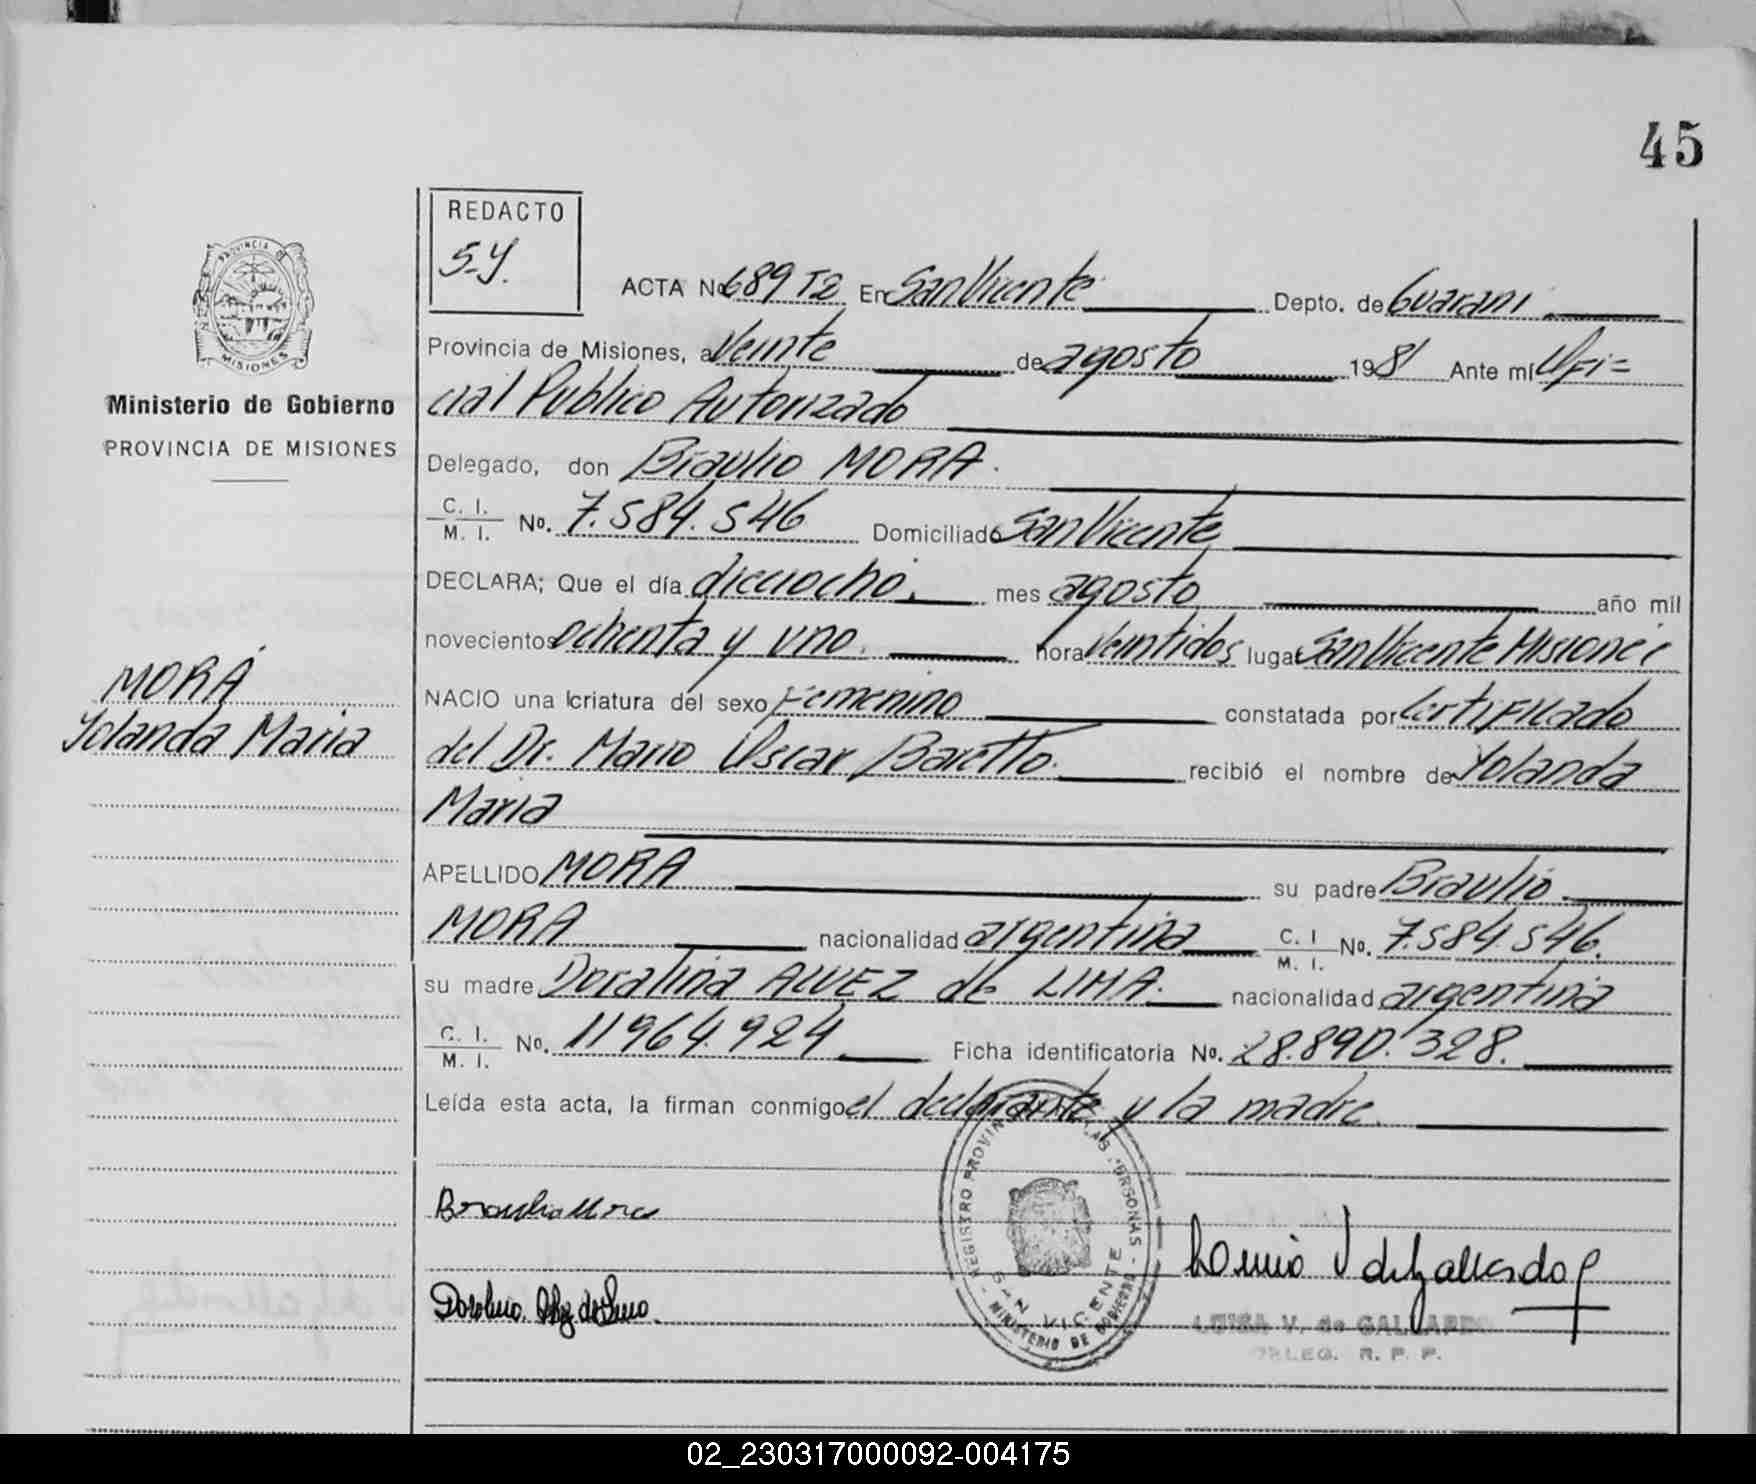 45
REDACTO
S.Y.
ACTA No 689 T2 En San Vicente Depto. de Guarani
PROVINCIA DE
MISIONES
Provincia de Misiones, a Veinte de agosto 1981 Ante mí Ofi=
Ministerio de Gobierno
cial Publico Autorizado
PROVINCIA DE MISIONES
Delegado, don Braulio MORA.
C. I. / M. I. No. 7.584.546 Domiciliado San Vicente
DECLARA; Que el día dieciocho. mes agosto año mil
novecientos ochenta y uno. hora Veintidos lugar San Vicente Misiones
MORA
NACIO una criatura del sexo Femenino constatada por Certificado
Yolanda Maria
del Dr. Mario Oscar Baretto. recibió el nombre de Yolanda
Maria
APELLIDO MORA su padre Braulio
MORA nacionalidad argentina C. I / M. I. No. 7.584.546.
su madre Doralina ALVEZ de LIMA. nacionalidad argentina
C. I. / M. I. No. 11964.924 Ficha identificatoria No. 28.890.328.
Leída esta acta, la firman conmigo el declarante y la madre.
Braulio Mora
REGISTRO PROVIN LAS PERSONAS
SAN VICENTE
MINISTERIO DE GOBIERNO
Doralina Alvez de Lima.
LUISA V. de GALLARDO
DELEG. R. P. P.
02_230317000092-004175